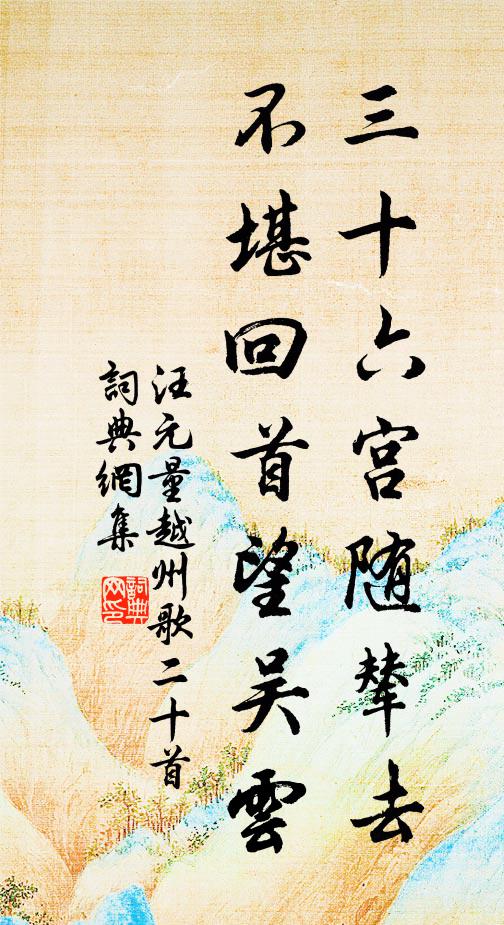 三十六宫随辇去
不堪回首望吴雲
汪元量越州歌二十首
詞典網集
詞典
网印